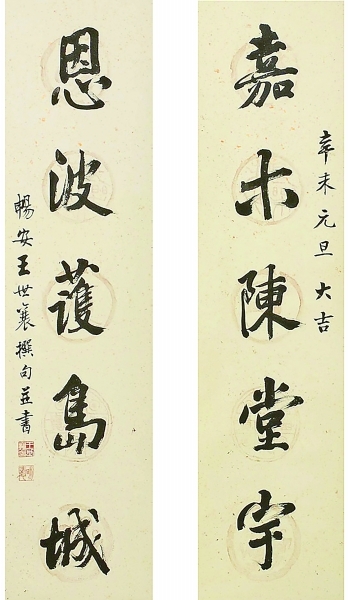 辛未元旦大吉
嘉木陳堂宇
恩波護島城
暢安王世襄撰句並書